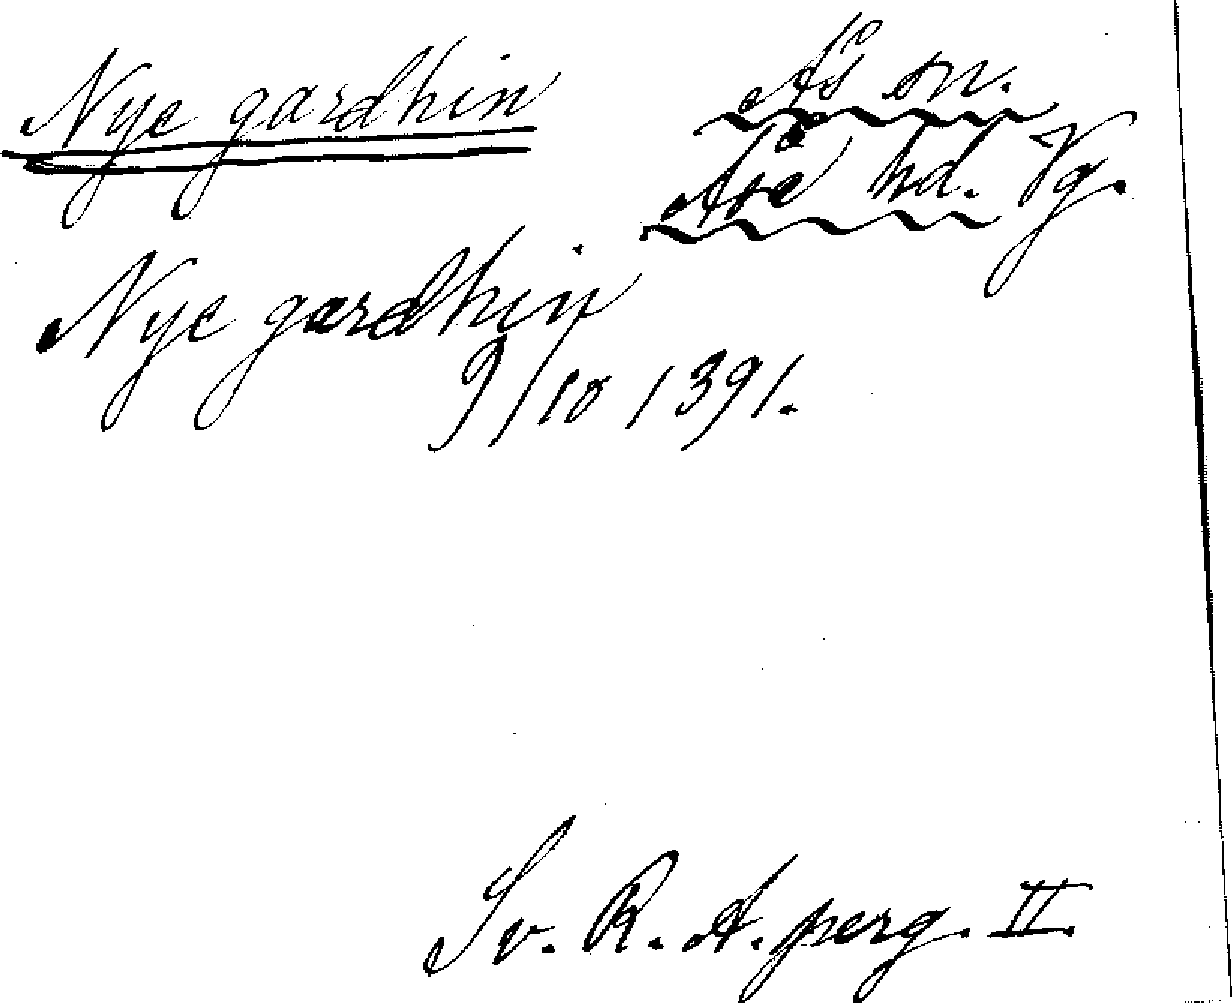 Nye gardhin
Ås sn.
Åse hd. Vg.
Nye gardhin
9/10 1391.
Sv. R. A. perg. II.